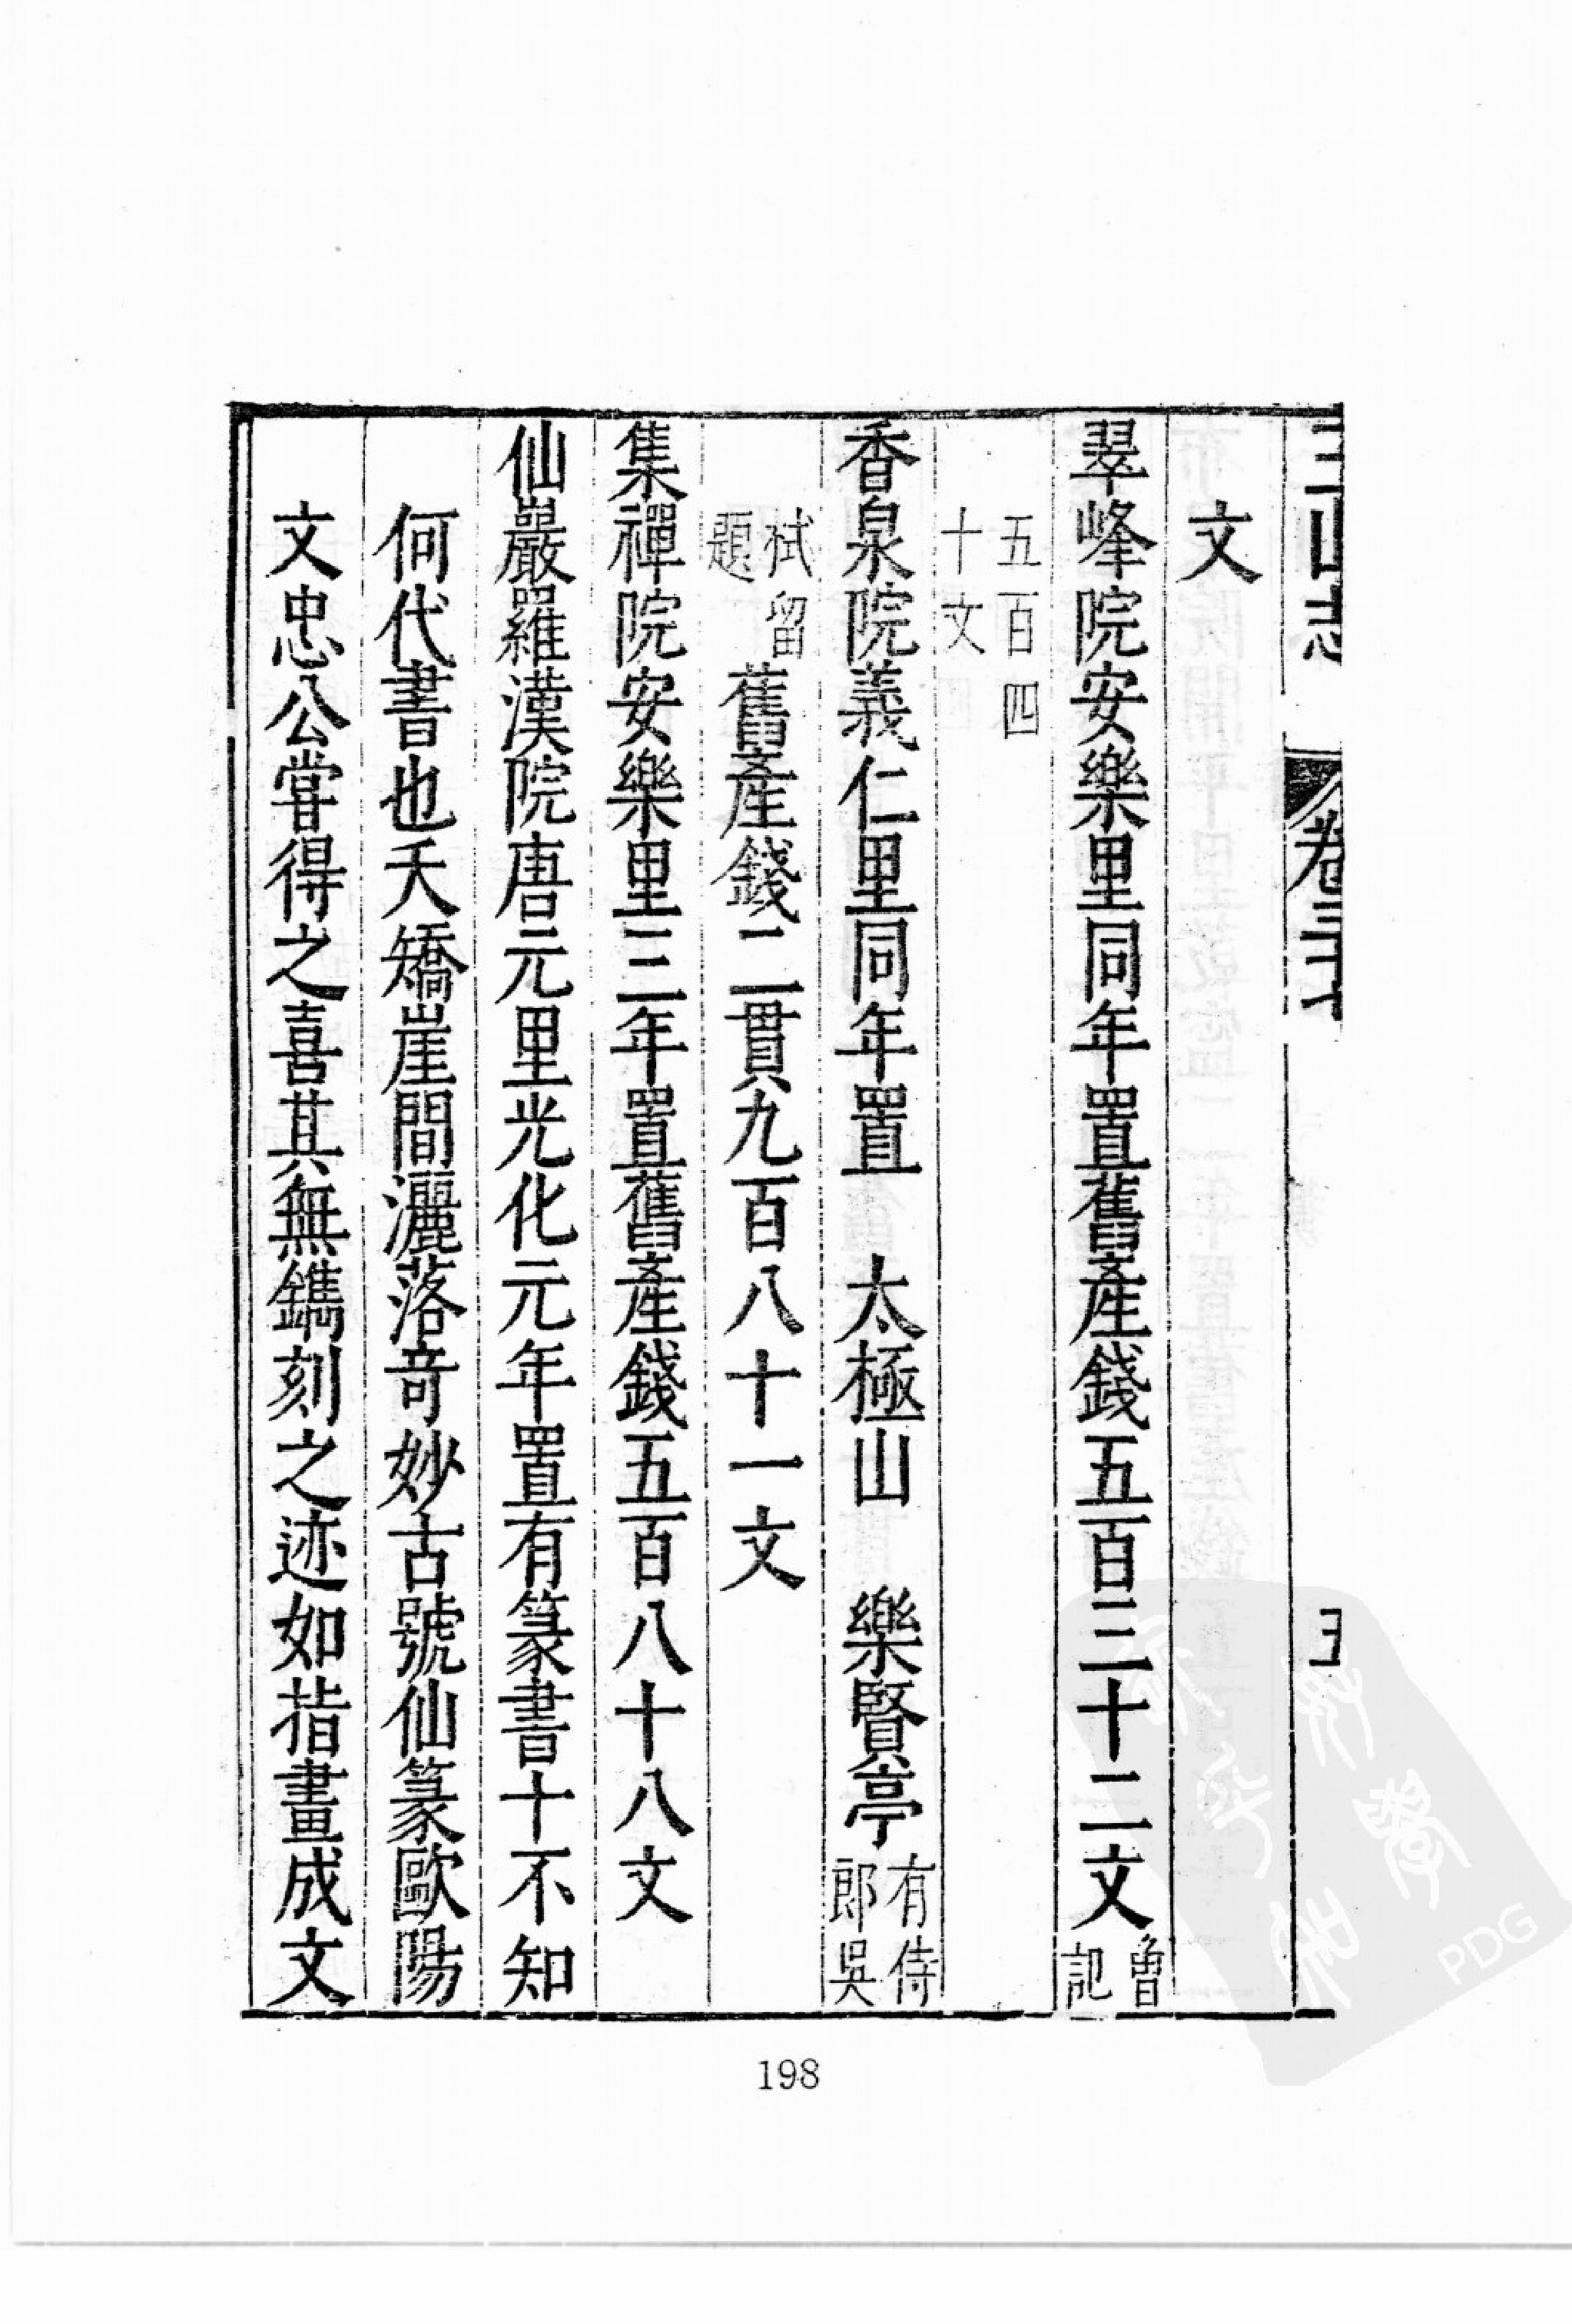 三山志 卷三十 五
文
翠峰院安樂里同年置舊產錢五百三十二文魯記
五百四十文
香泉院義仁里同年置 太極山 樂賢亭有侍郎吳
栻留題舊產錢二貫九百八十一文
集禪院安樂里三年置舊產錢五百八十八文
仙巖羅漢院唐元里光化元年置有篆書十不知
何代書也夭矯崖間灑落竒妙古號仙篆歐陽
文忠公嘗得之喜其無鐫刻之迹如指畫成文
198
PDG